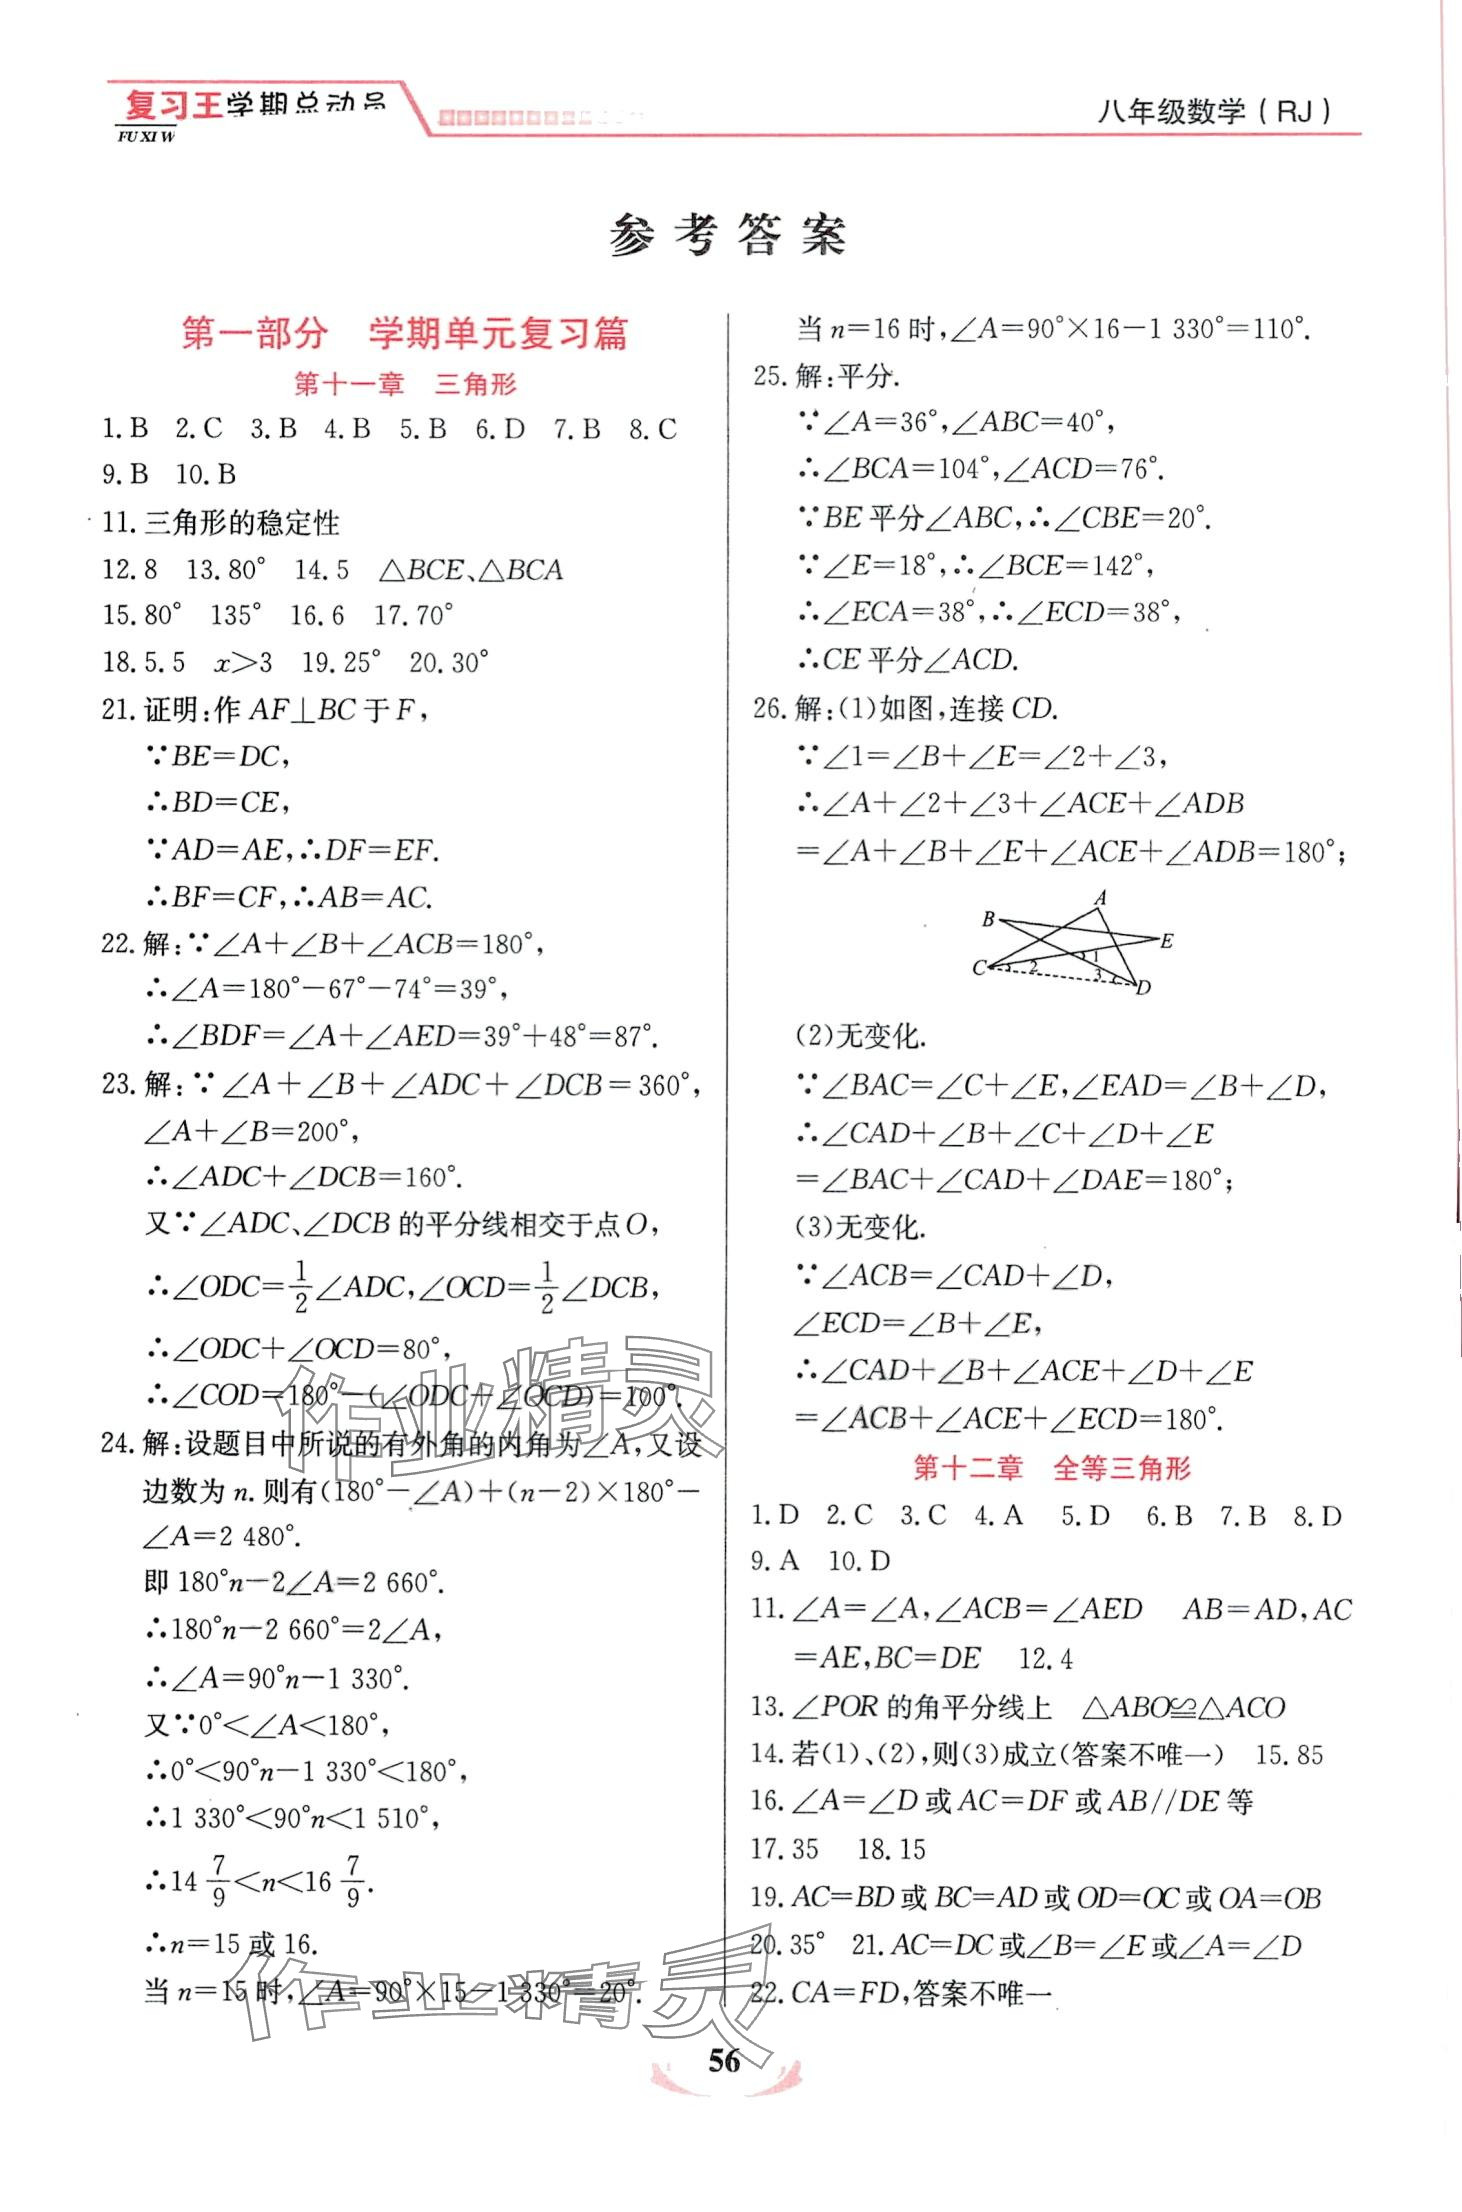 复习王学期总动员
FU XI W
八年级数学(RJ)
参考答案
第一部分 学期单元复习篇
第十一章 三角形
1.B 2.C 3.B 4.B 5.B 6.D 7.B 8.C
9.B 10.B
11.三角形的稳定性
12.8 13.80° 14.5 △BCE、△BCA
15.80° 135° 16.6 17.70°
18.5.5 x>3 19.25° 20.30°
21.证明:作AF⊥BC于F,
∵BE=DC,
∴BD=CE,
∵AD=AE,∴DF=EF.
∴BF=CF,∴AB=AC.
22.解:∵∠A+∠B+∠ACB=180°,
∴∠A=180°-67°-74°=39°,
∴∠BDF=∠A+∠AED=39°+48°=87°.
23.解:∵∠A+∠B+∠ADC+∠DCB=360°,
∠A+∠B=200°,
∴∠ADC+∠DCB=160°.
又∵∠ADC、∠DCB的平分线相交于点O,
∴∠ODC=1/2∠ADC,∠OCD=1/2∠DCB,
∴∠ODC+∠OCD=80°,
∴∠COD=180°-(∠ODC+∠OCD)=100°.
24.解:设题目中所说的有外角的内角为∠A,又设
边数为n.则有(180°-∠A)+(n-2)×180°-
∠A=2 480°.
即180°n-2∠A=2 660°.
∴180°n-2 660°=2∠A,
∴∠A=90°n-1 330°.
又∵0°<∠A<180°,
∴0°<90°n-1 330°<180°,
∴1 330°<90°n<1 510°,
∴14 7/9<n<16 7/9.
∴n=15或16.
当n=15时,∠A=90°×15-1 330°=20°.
当n=16时,∠A=90°×16-1 330°=110°.
25.解:平分.
∵∠A=36°,∠ABC=40°,
∴∠BCA=104°,∠ACD=76°.
∵BE平分∠ABC,∴∠CBE=20°.
∵∠E=18°,∴∠BCE=142°,
∴∠ECA=38°,∴∠ECD=38°,
∴CE平分∠ACD.
26.解:(1)如图,连接CD.
∵∠1=∠B+∠E=∠2+∠3,
∴∠A+∠2+∠3+∠ACE+∠ADB
=∠A+∠B+∠E+∠ACE+∠ADB=180°;
A
B
E
1
C
2
3
D
(2)无变化.
∵∠BAC=∠C+∠E,∠EAD=∠B+∠D,
∴∠CAD+∠B+∠C+∠D+∠E
=∠BAC+∠CAD+∠DAE=180°;
(3)无变化.
∵∠ACB=∠CAD+∠D,
∠ECD=∠B+∠E,
∴∠CAD+∠B+∠ACE+∠D+∠E
=∠ACB+∠ACE+∠ECD=180°.
第十二章 全等三角形
1.D 2.C 3.C 4.A 5.D 6.B 7.B 8.D
9.A 10.D
11.∠A=∠A,∠ACB=∠AED AB=AD,AC
=AE,BC=DE 12.4
13.∠POR的角平分线上 △ABO≌△ACO
14.若(1)、(2),则(3)成立(答案不唯一) 15.85
16.∠A=∠D或AC=DF或AB//DE等
17.35 18.15
19.AC=BD或BC=AD或OD=OC或OA=OB
20.35° 21.AC=DC或∠B=∠E或∠A=∠D
22.CA=FD,答案不唯一
作业精灵
作业精灵
56